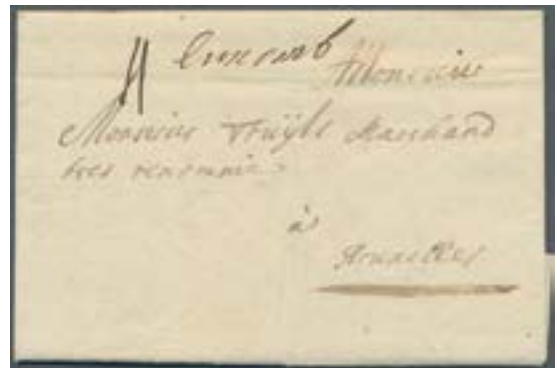 Luxemb
Monsieur
Monsieur Truijts Marchand
tres renommé
à
Bruxelles